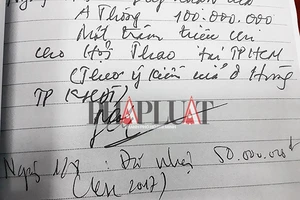 A Thông 100.000.000
Một trăm triệu chi
cho Hội Thao tại TP HCM
(Theo ý kiến của
TP KHĐT)
PHÁP LUẬT
Ngày 1/8 : Đã nhận 50.000.000đ
2017)